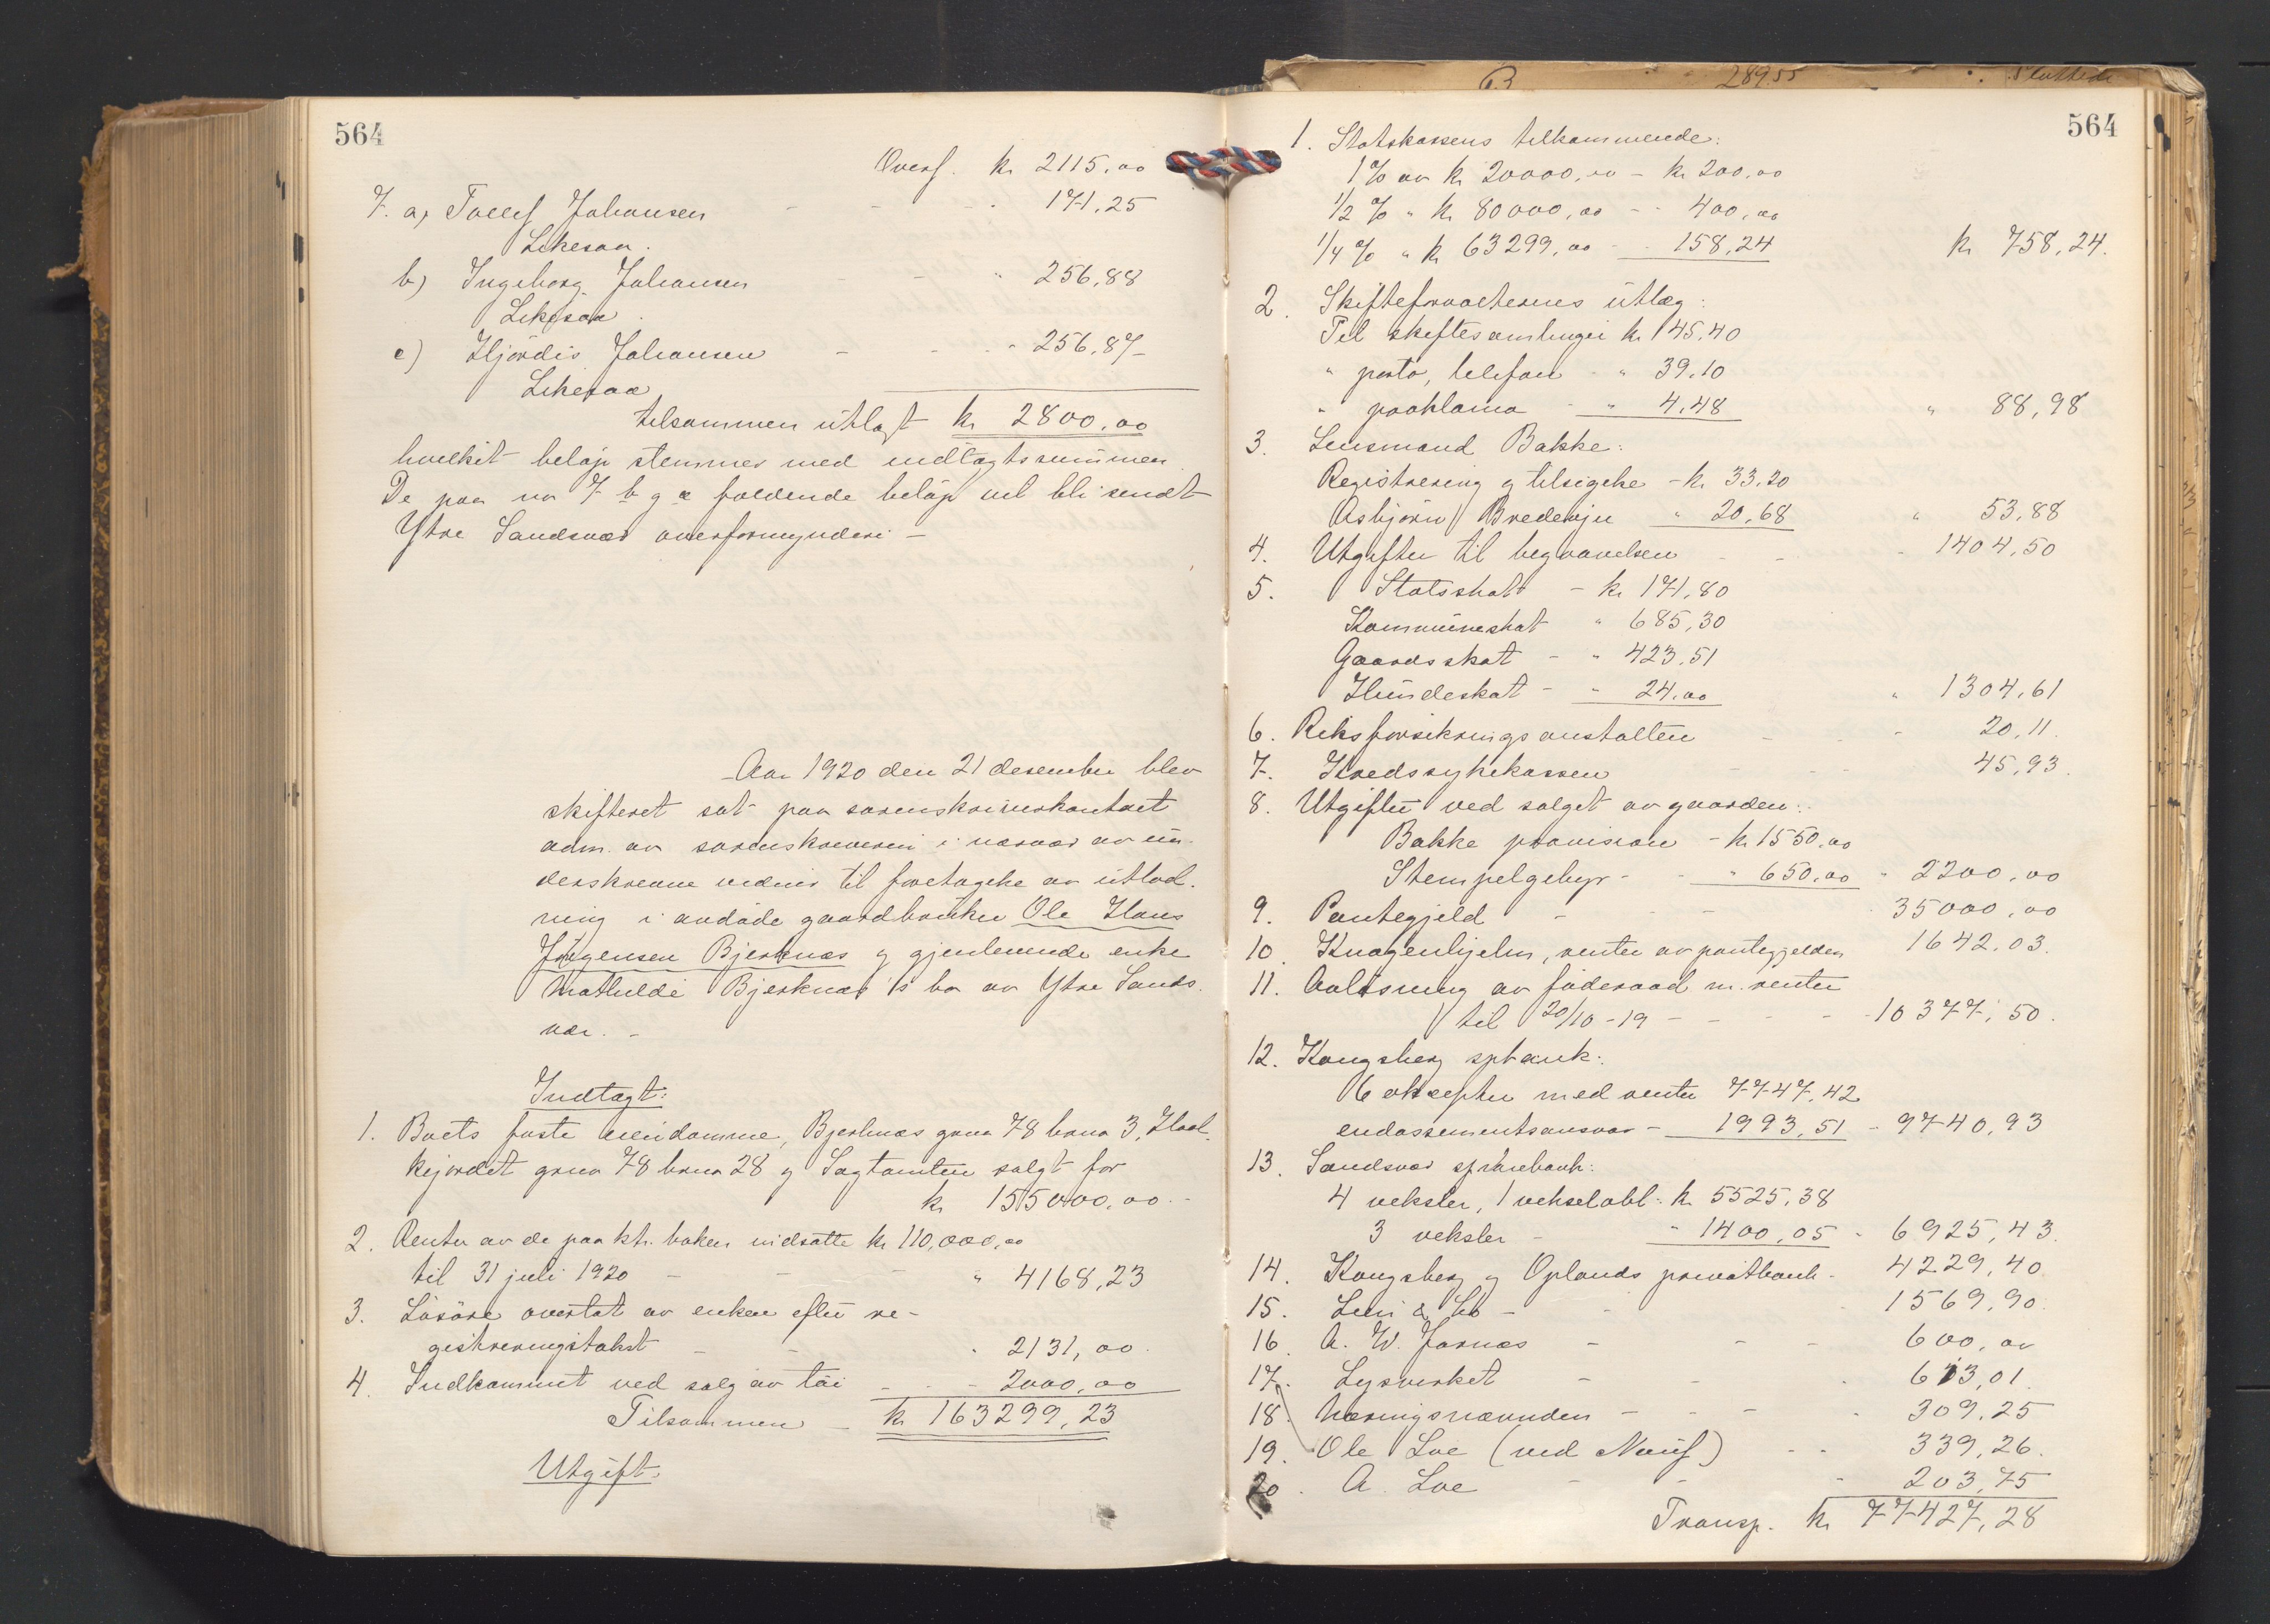 564
Overf. kr 2115,00
7. a, Tollef Johansen - - - " 171,25
Likesaa.
b) Ingeborg Johansen - - " 256,88
Likesaa.
c) Hjördis Johansen - - - " 256,87
Likesaa
tilsammen utlagt kr 2800,00
hvilket beløp stemmer med indtægtssummen.
De paa nr 7 b og c faldende beløp vil bli sendt
Ytre Sandsvær overformynderi -
Aar 1920 den 21 desember blev
skifteret sat paa sorenskriverkontoret
adm. av sorenskriveren i nærvær av un-
derskrevne vidner til foretagelse av utlod-
ning i avdøde gaardbruker Ole Hans
Jørgensen Bjerknæs og gjenlevende enke
Mathilde Bjerknæs's bo av Ytre Sands-
vær. -
Indtægt:
1. Boets faste eiendomme, Bjerknæs gnr 78 brnr 3,
kjordet gnr 78 brnr 28 og Sagtomten solgt for
kr 155000,00 -
2. Renter av de paa ktr. boken indsatte kr 110,000,00
til 31 juli 1920 - - - " 4168,23
3. Løsøre overtat av enken efter re-
gistreringstakst - - " 2131,00
4. Indkommet ved salg av töi - - - 2000,00
Tilsammen - kr 163299,23
Utgift.
B 289.55 Sluttede
564
1. Statskassens tilkommende:
1% av kr 20000,00 - kr 200,00
1/2 % " kr 80000,00 - - 400,00
1/4 % " kr 63299,00 - - 158,24 kr 758,24.
2. Skifteforvalterens utlæg:
Til skiftesamlinger kr 45,40
" porto, telefon - " 39.10
" proklama - " 4,48 " 88,98
3. Lensmand Bakke:
Registrering og tilsigelse - kr 33.20
Asbjørn Bredevju " 20,68 " 53,88
4. Utgifter til begravelsen - - - 1404,50
5. Statsskat - kr 171,80
Kommuneskat " 685,30
Gaardsskat - " 423,51
Hundeskat - " 24.00 " 1304,61
6. Riksforsikringsanstalten - - - 20,11.
7. Kredssykekassen - - - 45,93.
8. Utgifter ved salget av gaarden:
Bakke provision - kr 1550,00
Stempelgebyr - - " 650,00 " 2200,00
9. Pantegjeld - - - 35000,00
10. Knagenhjelm, renter av pantegjelden 1642.03.
11. Avløsning av föderaad m. renter
til 20/10-19 - - - - - 10377,50.
12. Kongsberg spbank:
6 aksepter med renter 7747,42
endossementsansvar - 1993,51 - 9740,93
13. Sandsvær sparebank:
4 veksler, 1 vekselobl: kr 5525,38
3 veksler - " 1400,05 - 6925,43.
14. Kongsberg og Oplands privatbank - 4229,40
15. & Co - - - 1569,90.
16. A. W. Jarnæs - - - 600,00
17. Lysverket - - - 613,01.
18. Næringsnævnden - - - 309,25
19. Ole Loe (ved ) - - 339,26.
20. A. Loe - - - 203,75
Transp. kr 77427,28